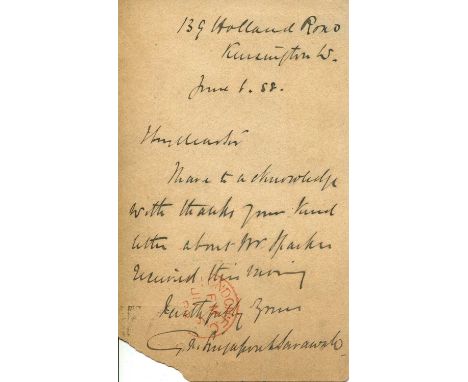 139 Holland Road
Kensington W.
June 6. 88.
My dear Sir
I have to acknowledge
with thanks your kind
letter about Mr Sparkes
received this evening
Faithfully yours
G. F. Singapore & Sarawak